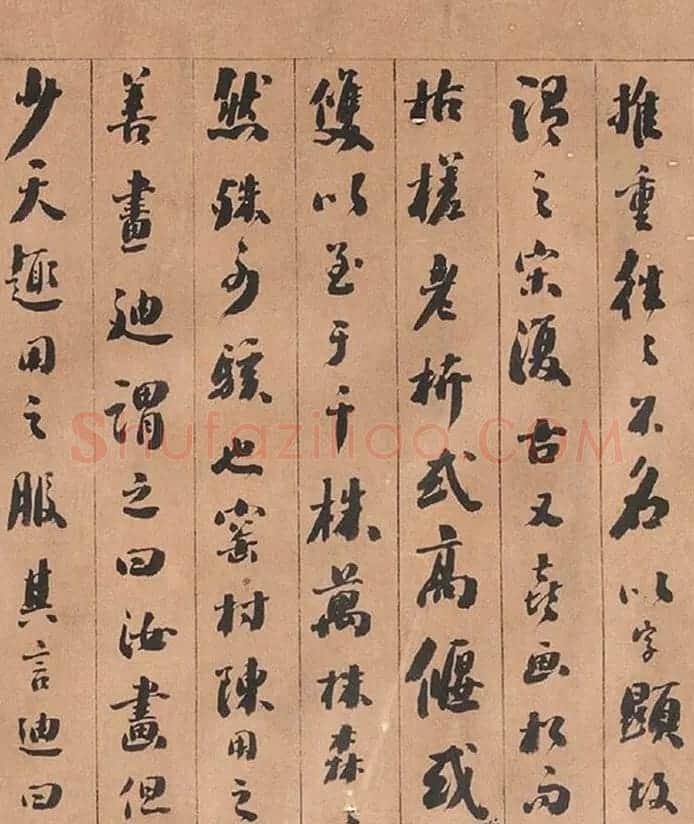 推重往々不名以字顯故
謂之宋復古又喜画松而
枯槎老枿或高偃或
雙以至于千株萬株森々
然殊可駭也窯村陳用之
善畫迪謂之曰汝畫但
少天趣用之服其言迪曰
Shufaziliao.COM